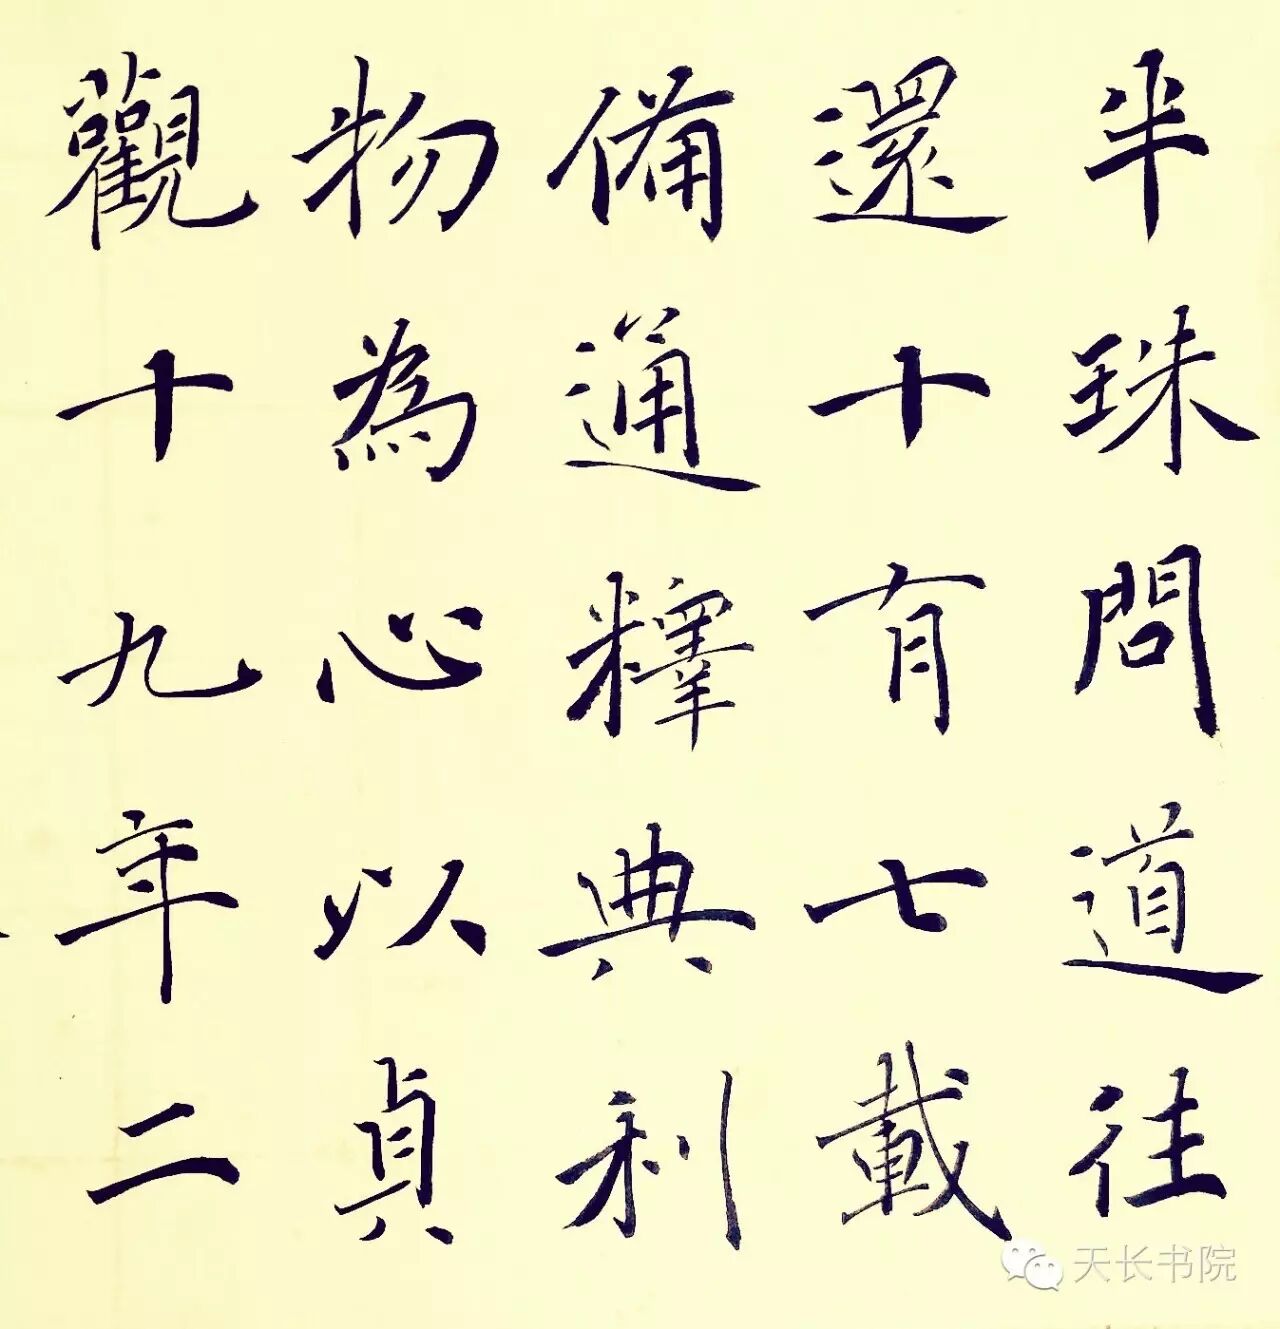 半珠問道往
還十有七載
備通釋典利
物為心以貞
觀十九年二
天长书院